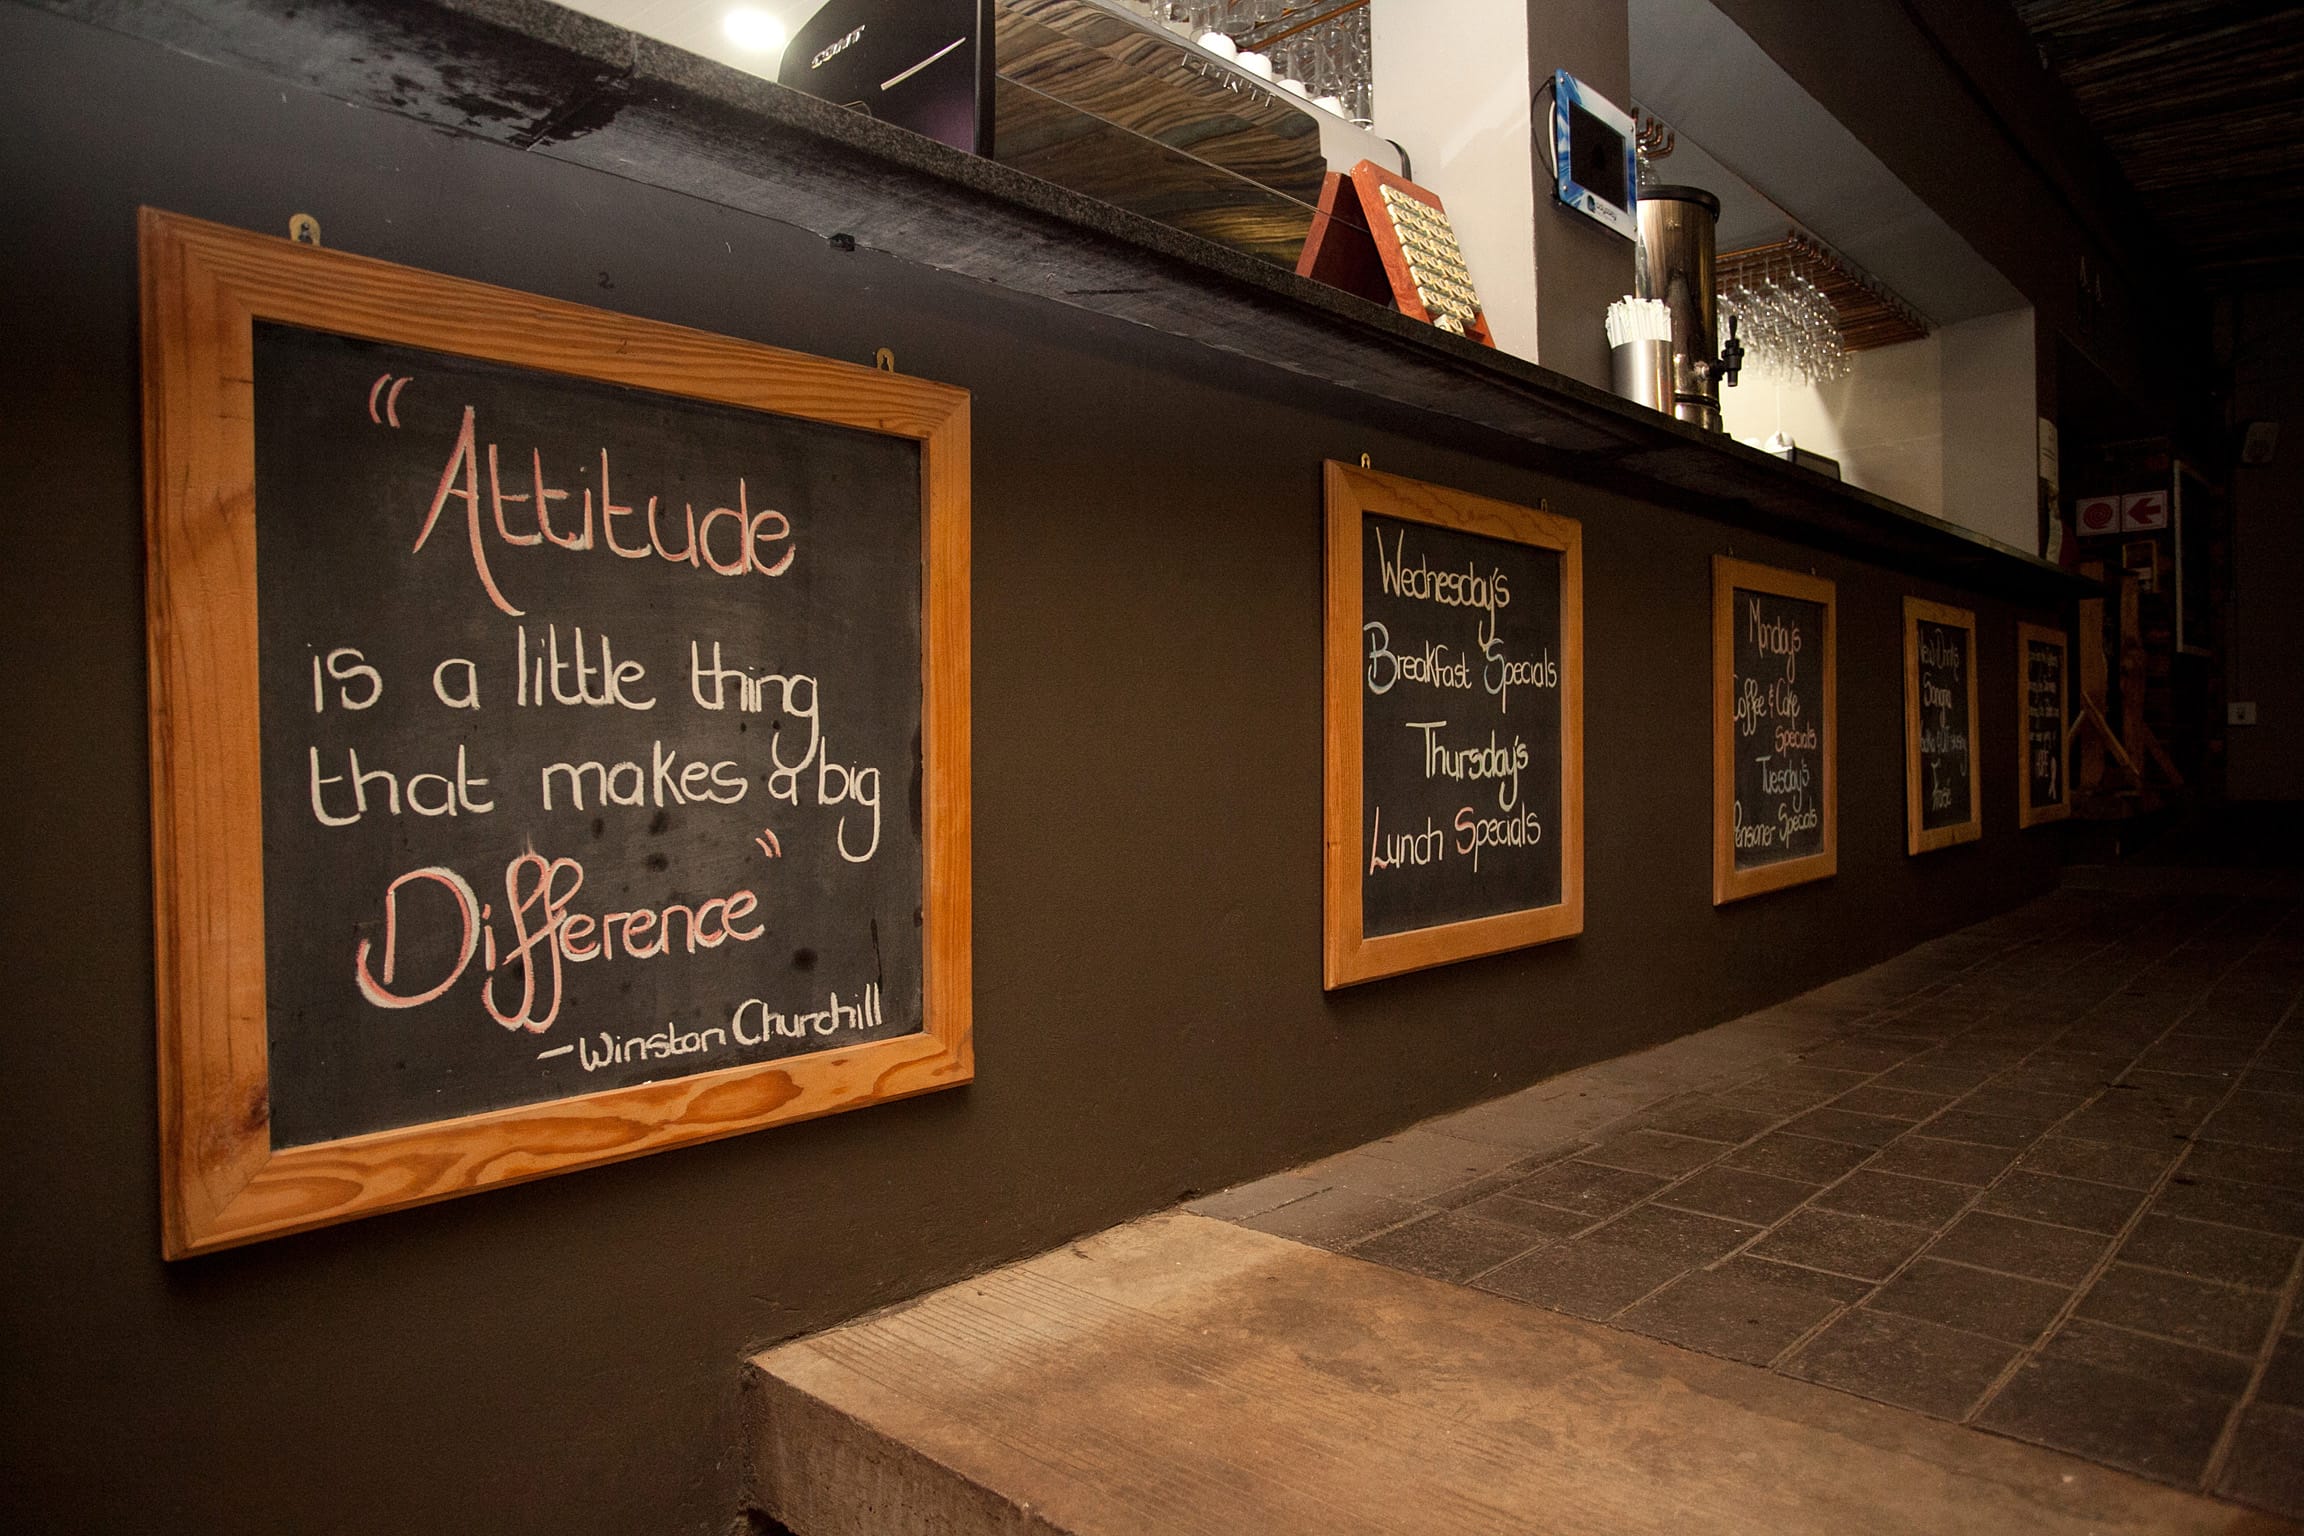 “Attitude
is a little thing
that makes a big
Difference”
-Winston Churchill
Wednesday's
Breakfast Specials
Thursday's
Lunch Specials
Monday's
Coffee & Cake
Specials
Tuesday's
Pensioner Specials
New Drinks
Sangria
HOPE